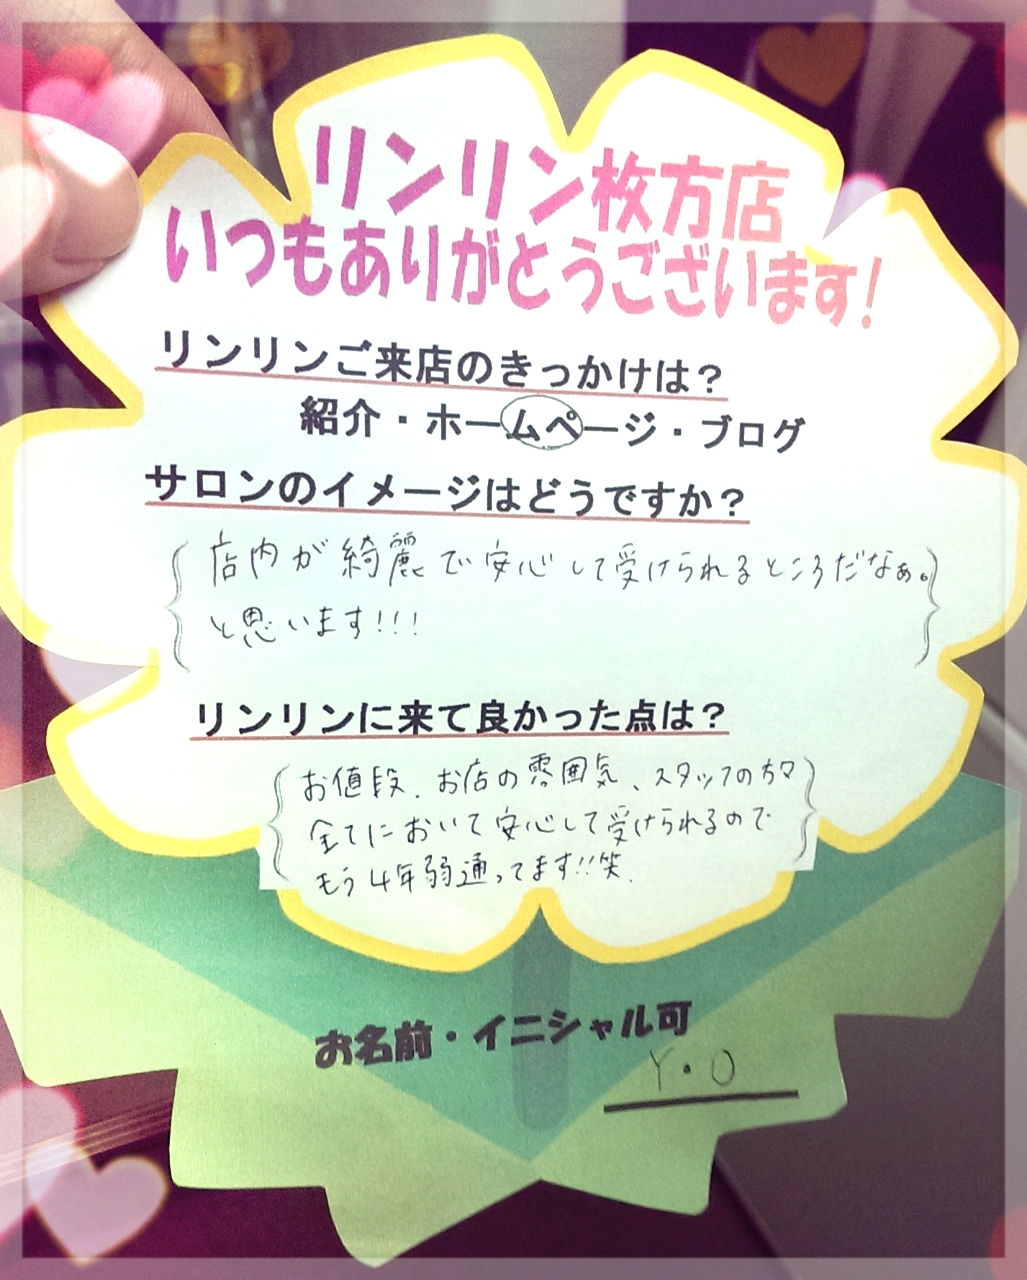 リンリン枚方店
いつもありがとうございます!
リンリンご来店のきっかけは?
紹介・ホームページ・ブログ
サロンのイメージはどうですか?
店内が綺麗で安心して受けられるところだなぁ。
と思います!!!
リンリンに来て良かった点は?
お値段、お店の雰囲気、スタッフの方々
全てにおいて安心して受けられるので
もう4年弱通ってます!!笑.
お名前・イニシャル可
Y・O